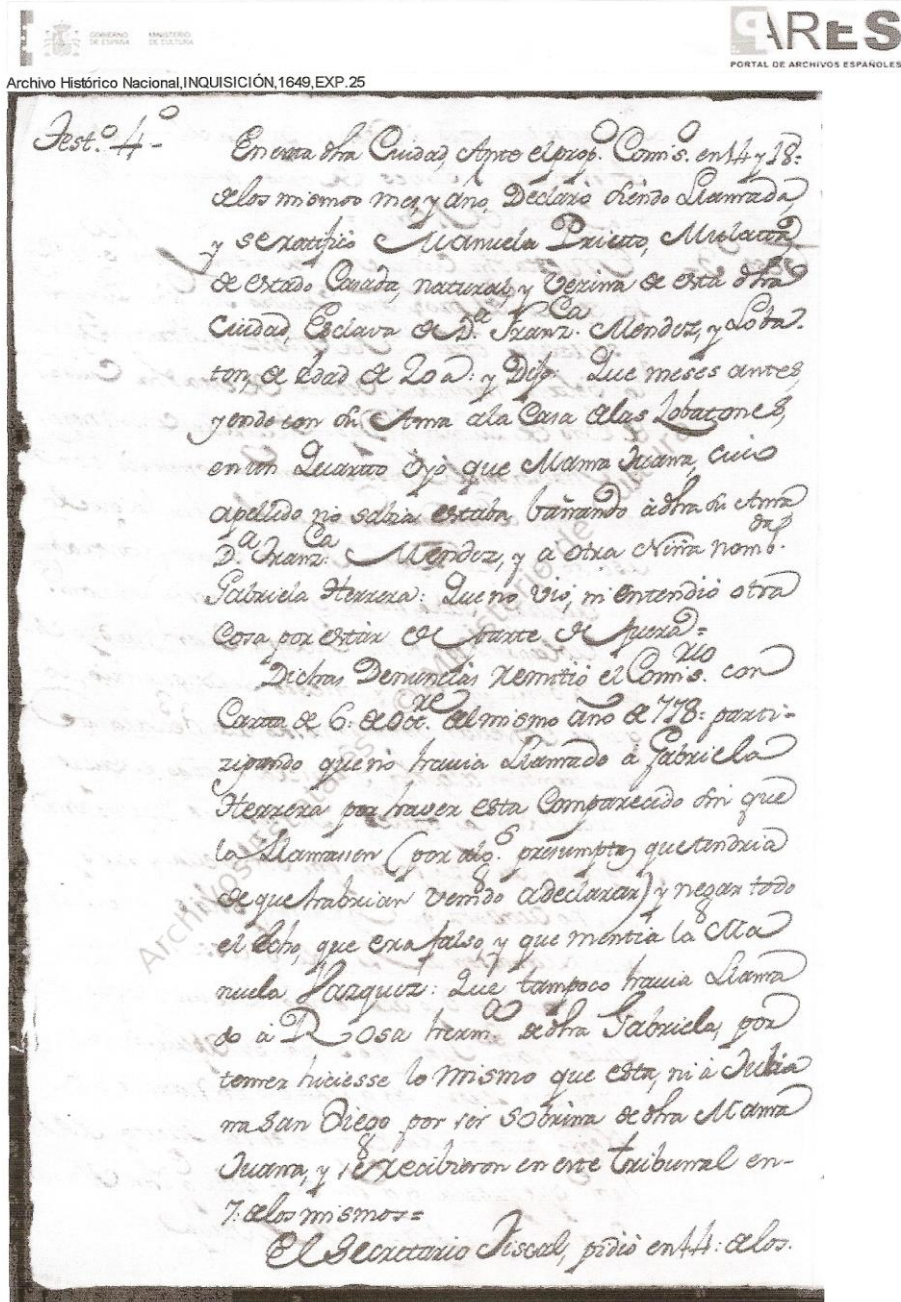 GOBIERNO DE ESPAÑA
MINISTERIO DE CULTURA
PARES
PORTAL DE ARCHIVOS ESPAÑOLES
Archivo Histórico Nacional,INQUISICIÓN,1649,EXP.25
Test.º 4º -
En esta dha Ciudad, Ante el prop.º Comis.º en 14 y 18:
de los mismos mes, y año, Declaró siendo Llamada,
y se ratificó Manuela Prieto, Mulata
de estado Casada, natural, y Vezina de esta dha
Ciudad, Esclava de D.ª Franz.ca Mendez, y Loba-
ton, de edad de 20 a: y Dijo: Que meses antes,
yendo con su Ama a la Casa de las Lobatones,
en un Quarto oyó que Mama Juana, cuio
apellido no sabia estaba bañando à dha su Ama
D.ª Franz.ca Mendez, y a otra Niña nomb.da
Gabriela Herrera: Que no vio, ni entendió otra
Cosa por estàr de parte de afuera =
Dichas Denuncias remitió el Comis.rio con
Carta de 6: de Oct.re del mismo año de 778: parti-
zipando que no havia Llamado à Gabriela
Herrera por haver esta Comparecido sin que
la Llamasen (por alg.s presumptas que tendria
de que habrian venido a declarar) y negar todo
el echo, que era falso, y que mentia la Ma
nuela Vazquez: Que tampoco havia Llama
do à Rosa herm.a de dha Gabriela, por
temer hiciesse lo mismo que esta, ni à Julia
na San Diego por ser Sobrina de dha Mama
Juana, y se recibieron en este Tribunal en-
7: de los mismos =
El Secretario Fiscal, pidió en 14: de los.
Archivos Estatales, © Ministerio de Cultura